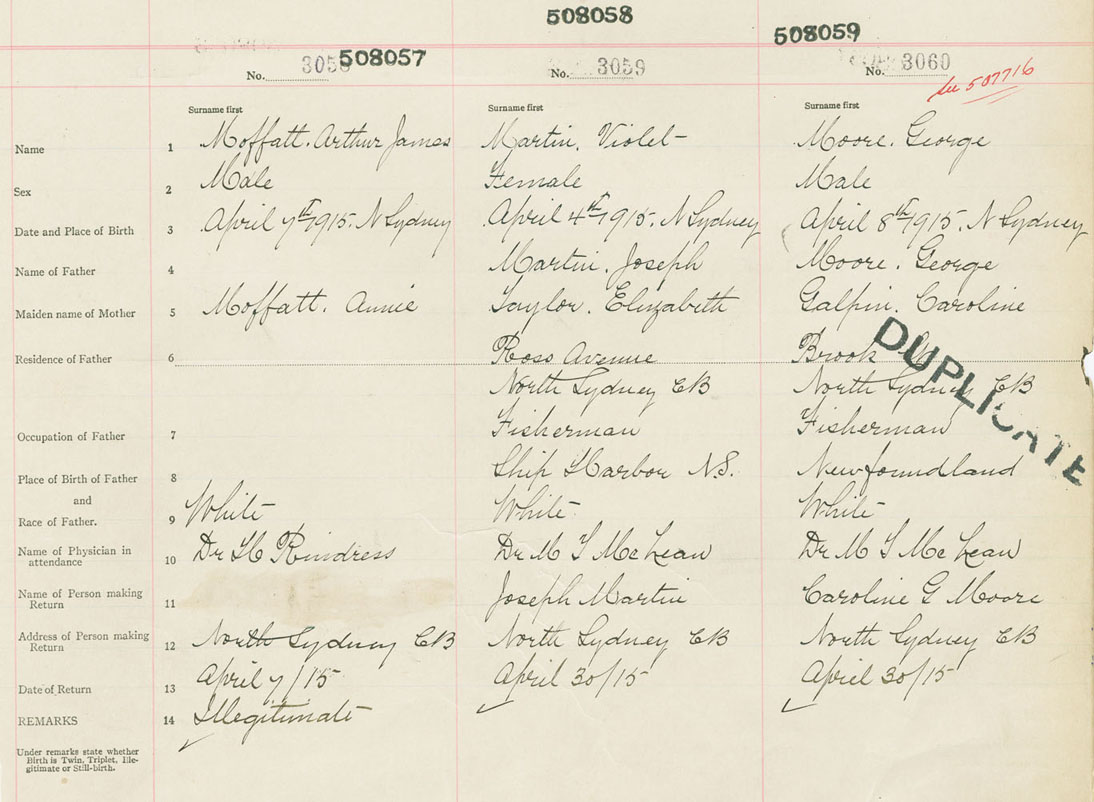 508058
508059
508057
No. 305
No. 3059
No. 3060
See 507716
Surname first Surname first Surname first
Name 1 Moffatt. Arthur James Martin. Violet Moore. George
Sex 2 Male Female Male
Date and Place of Birth 3 April 7th 1915. N Sydney April 4th 1915. N Sydney April 8th 1915. N Sydney
Name of Father 4 Martin. Joseph Moore. George
Maiden name of Mother 5 Moffatt. Annie Taylor. Elizabeth Galpin. Caroline
Residence of Father 6 Ross Avenue Brook
DUPLICATE
North Sydney CB North Sydney CB
Occupation of Father 7 Fisherman Fisherman
Place of Birth of Father 8 Ship Harbor N.S. Newfoundland
and
Race of Father. 9 White White White
Name of Physician in
attendance 10 Dr Rindress Dr M McLean Dr M McLean
Name of Person making
Return 11 Joseph Martin Caroline G Moore
Address of Person making
Return 12 North Sydney CB North Sydney CB North Sydney CB
Date of Return 13 April 7/15 April 30/15 April 30/15
REMARKS 14 Illegitimate
Under remarks state whether
Birth is Twin, Triplet, Ille-
gitimate or Still-birth.